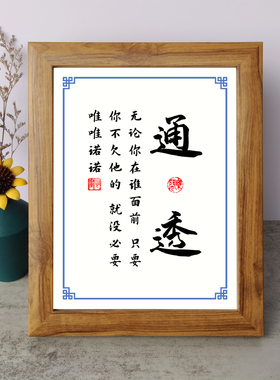 通透
无论你在谁面前 只要
你不欠他的 就没必要
唯唯诺诺